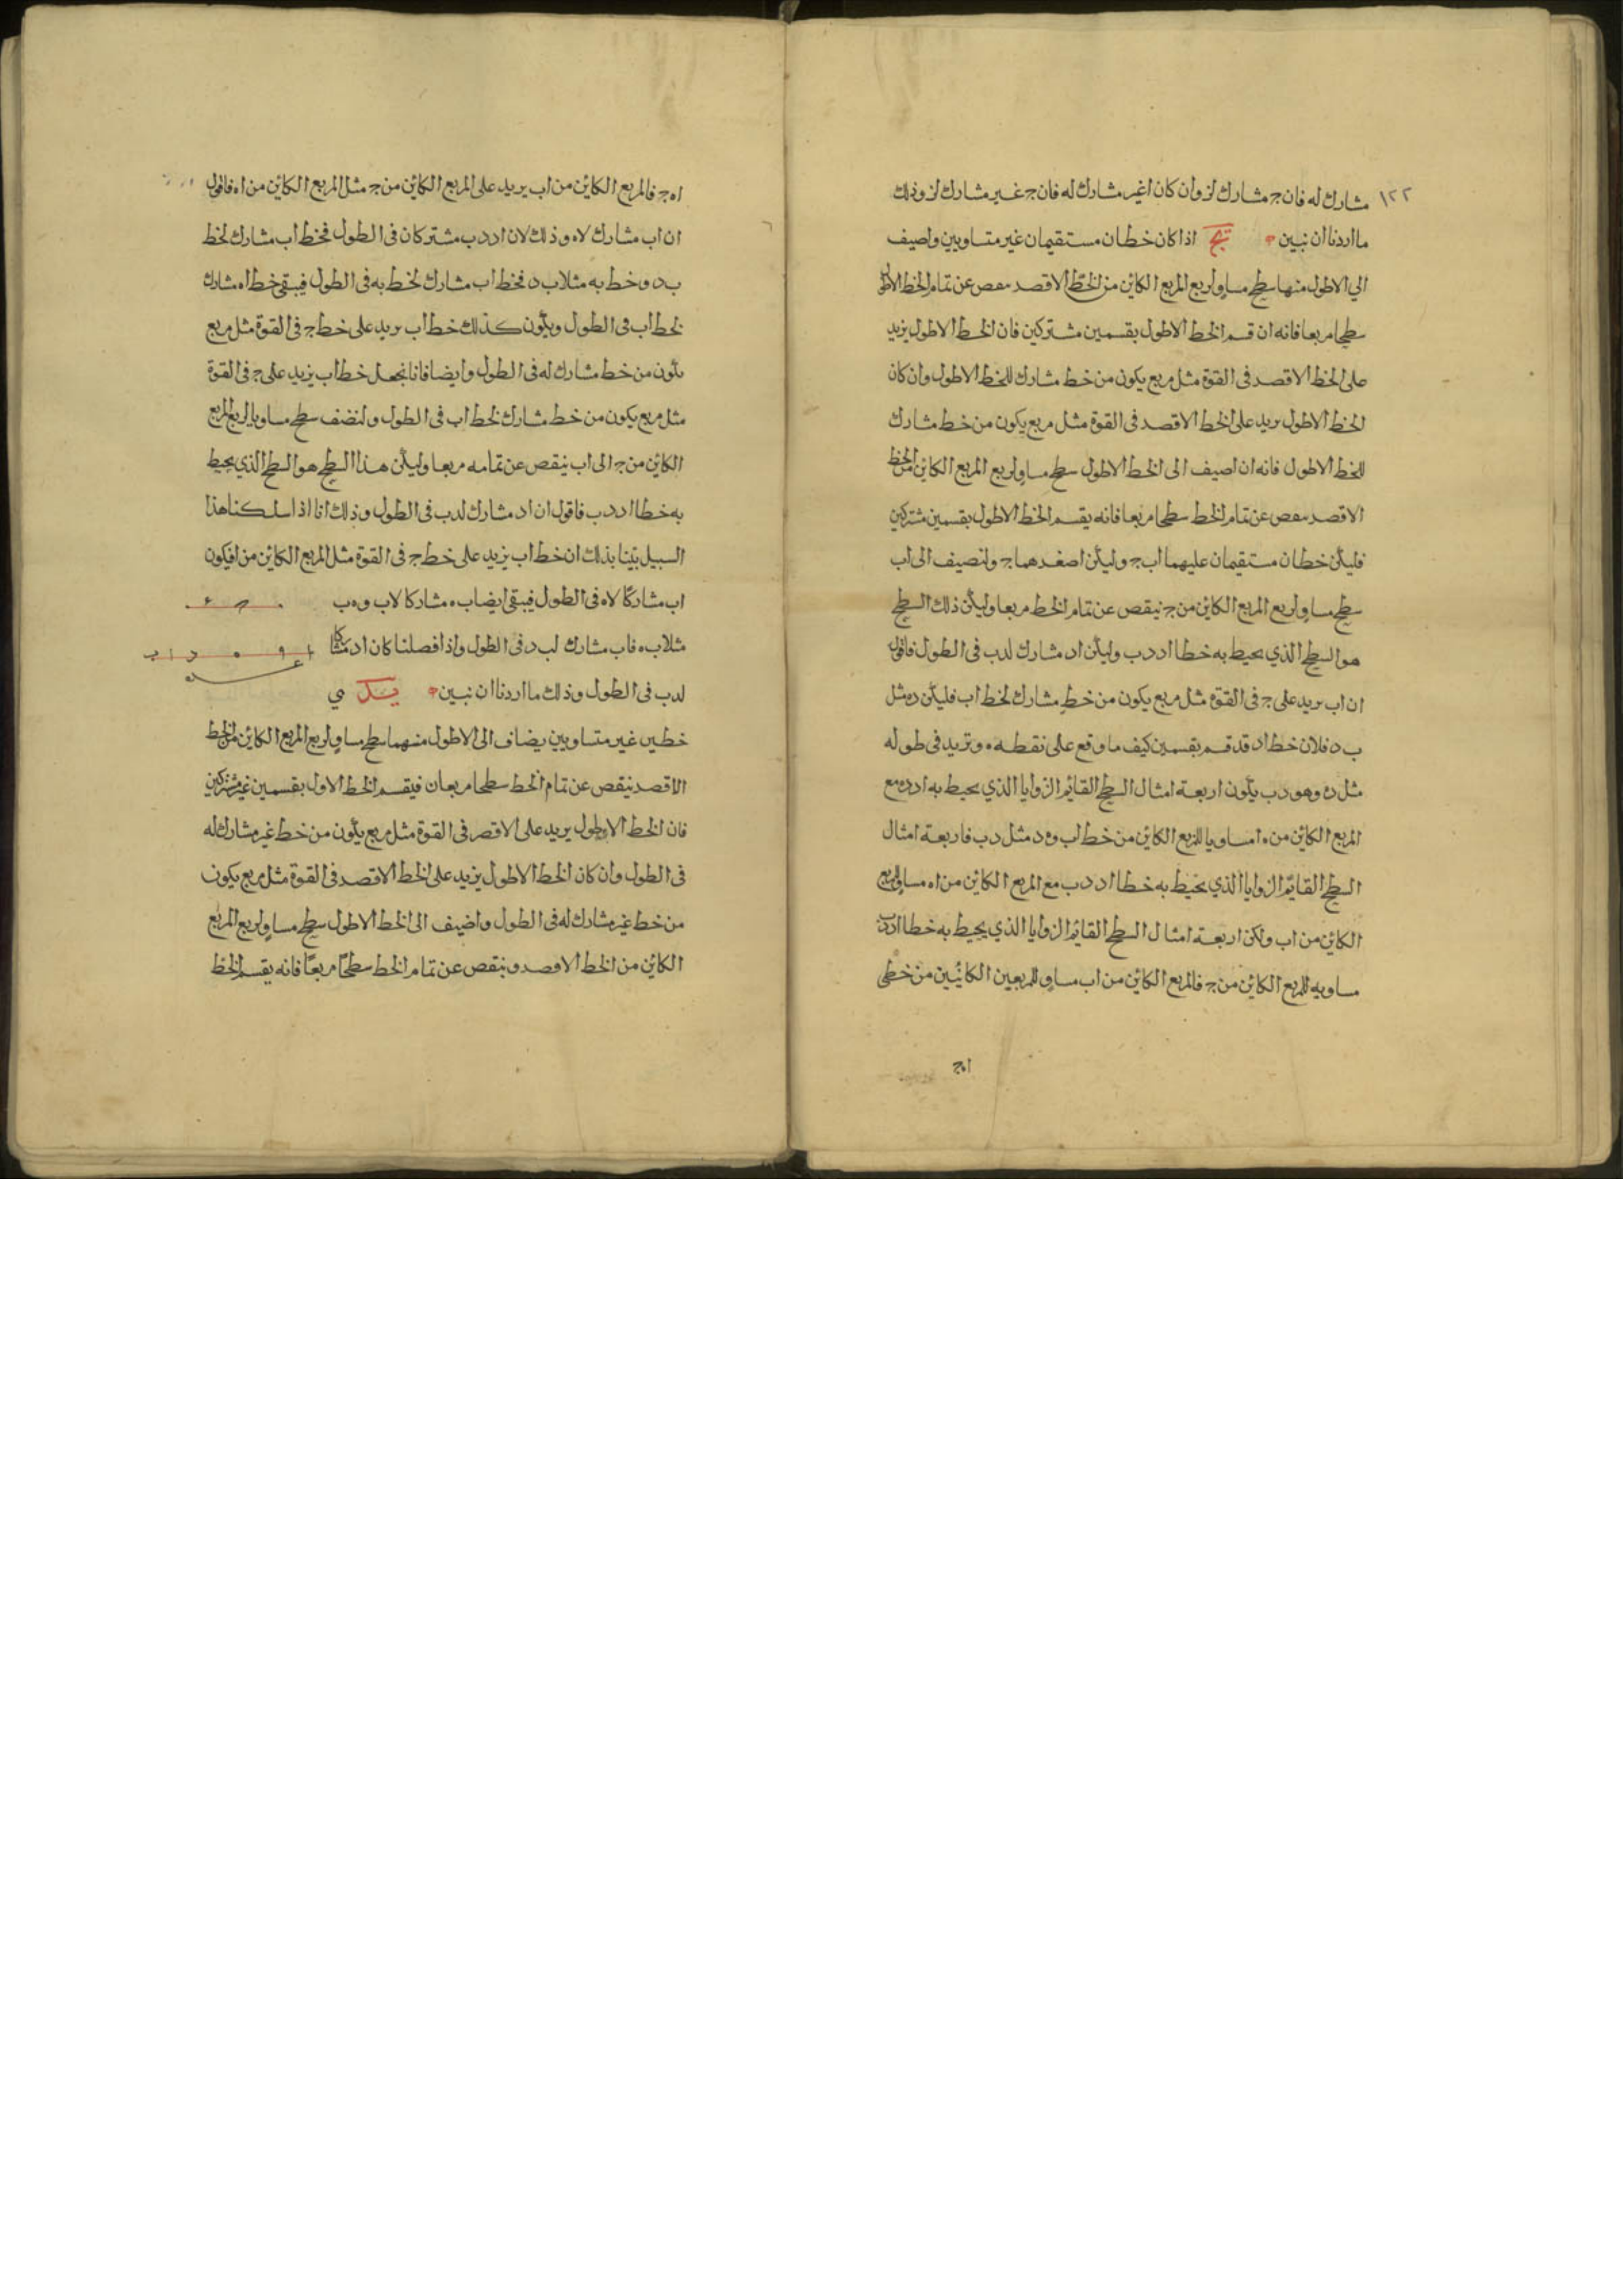 ١٢٢
مشارك له فان ج مشارك لز وان كان ا غير مشارك له فان ج غير مشارك لز وذلك
ما اردنا ان نبين يج اذا كان خطان مستقيمان غير متساويين واصيف
الي الاطول منها سطح مساو لربع المربع الكائن من الخط الاقصد عن تمام الخط الاطول
سطحا مربعا فانه ان قسم الخط الاطول بقسمين مشتركين فان الخط الاطول يزيد
على الخط الاقصد فى القوة مثل مربع يكون من خط مشارك للخط الاطول وان كان
الخط الاطول يريد على الخط الاقصد فى القوة مثل مربع يكون من خط مشارك
للخط الاطول فانه ان اصيف الى الخط الاطول سطح مساو لربع المربع الكائن من الخط
الاقصد عن تمام الخط سطحا مربعا فانه يقسم الخط الاطول بقسمين مشتركين
فليكن خطان مستقيمان عليهما اب ج وليكن اصغرهما ج ولنصيف الى اب
سطح مساو لربع المربع الكائن من ج ينقص عن تمام الخط مربعا وليكن ذلك السطح
هو السطح الذي يحيط به خطا اد دب وليكن اد مشارك لدب فى الطول فاقول
ان اب يريد على ج فى القوة مثل مربع يكون من خط مشارك لخط اب فليكن ده مثل
ب د فلان خط اد قد قسم بقسمين كيف ما وقع على نقطه ه وتريد فى طوله
مثل ده وهو دب يكون اربعة امثال السطح القائم الزوايا الذي يحيط به اد ده مع
المربع الكائن من ه ا مساويا للمربع الكائن من خط اب و ه د مثل دب فاربعة امثال
السطح القائم الزوايا الذي يحيط به خطا اد دب مع المربع الكائن من اه مساو للمربع
الكائن من اب ولكن اربعة امثال السطح القائم الزوايا الذي يحيط به خطا اد دب
مساويه للمربع الكائن من ج فالمربع الكائن من اب مساو للمربعين الكائنين من خطى
اه ج
اه ج فالمربع الكائن من اب يريد على المربع الكائن من ج مثل المربع الكائن من اه فاقول
ان اب مشارك لاه وذلك لان اد دب مشتركان فى الطول فخط اب مشارك لخط
ب د وخط به مثلا ب د فخط اب مشارك لخط به فى الطول فيبقى خط اه مشارك
لخط اب فى الطول ويكون كذلك خط اب يريد على خط ج فى القوة مثل مربع
يكون من خط مشارك له فى الطول وايضا فانا نجعل خط اب يزيد على ج فى القوة
مثل مربع يكون من خط مشارك لخط اب فى الطول ولنضف سطح مساويا لربع المربع
الكائن من ج الى اب ينقص عن تمامه مربعا وليكن هذا السطح هو السطح الذي يحيط
به خطا اد دب فاقول ان اد مشارك لدب فى الطول وذلك انا اذا سلكنا هذا
السبيل بينا بذلك ان خط اب يزيد على خط ج فى القوة مثل المربع الكائن من ا فيكون
اب مشاركا لاه فى الطول فيبقى ايضا ب ه مشاركا لاب و ه ب
مثلا ب ه فاب مشارك لب د فى الطول واذا فصلنا كان اد مشاركا
لدب فى الطول وذلك ما اردنا ان نبين يد مي
خطين غير متساويين يضاف الى الاطول منهما سطح مساو لربع المربع الكائن من الخط
الاقصد ينقص عن تمام الخط سطحا مربعان فيقسم الخط الاول بقسمين غير مشتركين
فان الخط الاطول يريد على الاقصر فى القوة مثل مربع يكون من خط غير مشارك له
فى الطول وان كان الخط الاطول يزيد على الخط الاقصد فى القوة مثل مربع يكون
من خط غير مشارك له فى الطول واضيف الى الخط الاطول سطح مساو لربع المربع
الكائن من الخط الاقصد وينقص عن تمام الخط سطحًا مربعًا فانه يقسم الخط